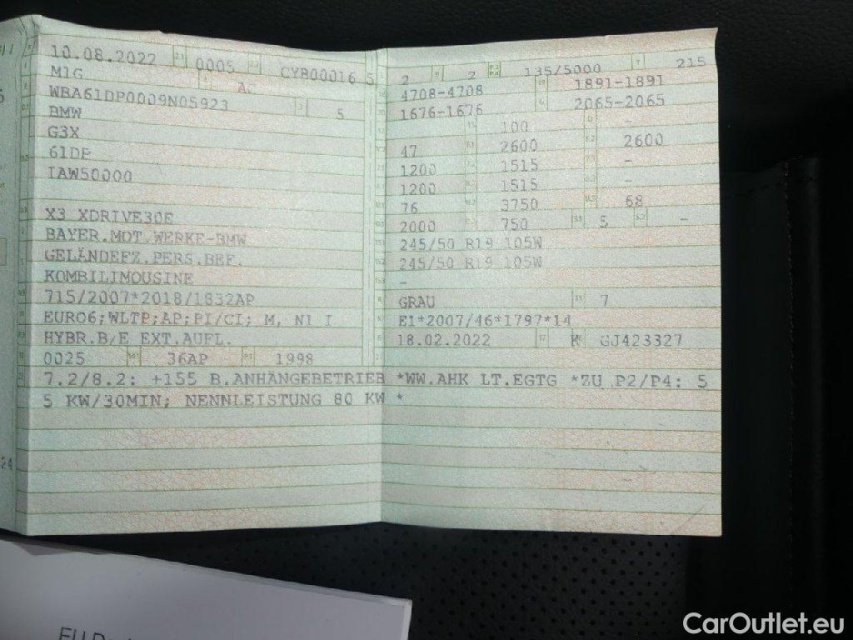 10.08.2022 0005 CYB00016 5
M1G AC
WBA61DP0009N05923 5
BMW
G3X
61DP
IAW50000
X3 XDRIVE30E
BAYER.MOT.WERKE-BMW
GELÄNDEFZ.PERS.BEF.
KOMBILIMOUSINE
715/2007*2018/1832AP
EURO6;WLTP;AP;PI/CI; M, N1 I
HYBR.B/E EXT.AUFL.
0025 36AP 1998
2 2 135/5000 215
4708-4708 1891-1891
1676-1676 2065-2065
100
47 2600 2600
1200 1515 -
1200 1515 -
76 3750 68
2000 750 5 -
245/50 R19 105W
245/50 R19 105W
-
GRAU 7
E1*2007/46*1797*14
18.02.2022 K GJ423327
7.2/8.2: +155 B.ANHÄNGEBETRIEB *WW.AHK LT.EGTG *ZU P2/P4: 5
5 KW/30MIN; NENNLEISTUNG 80 KW *
CarOutlet.eu